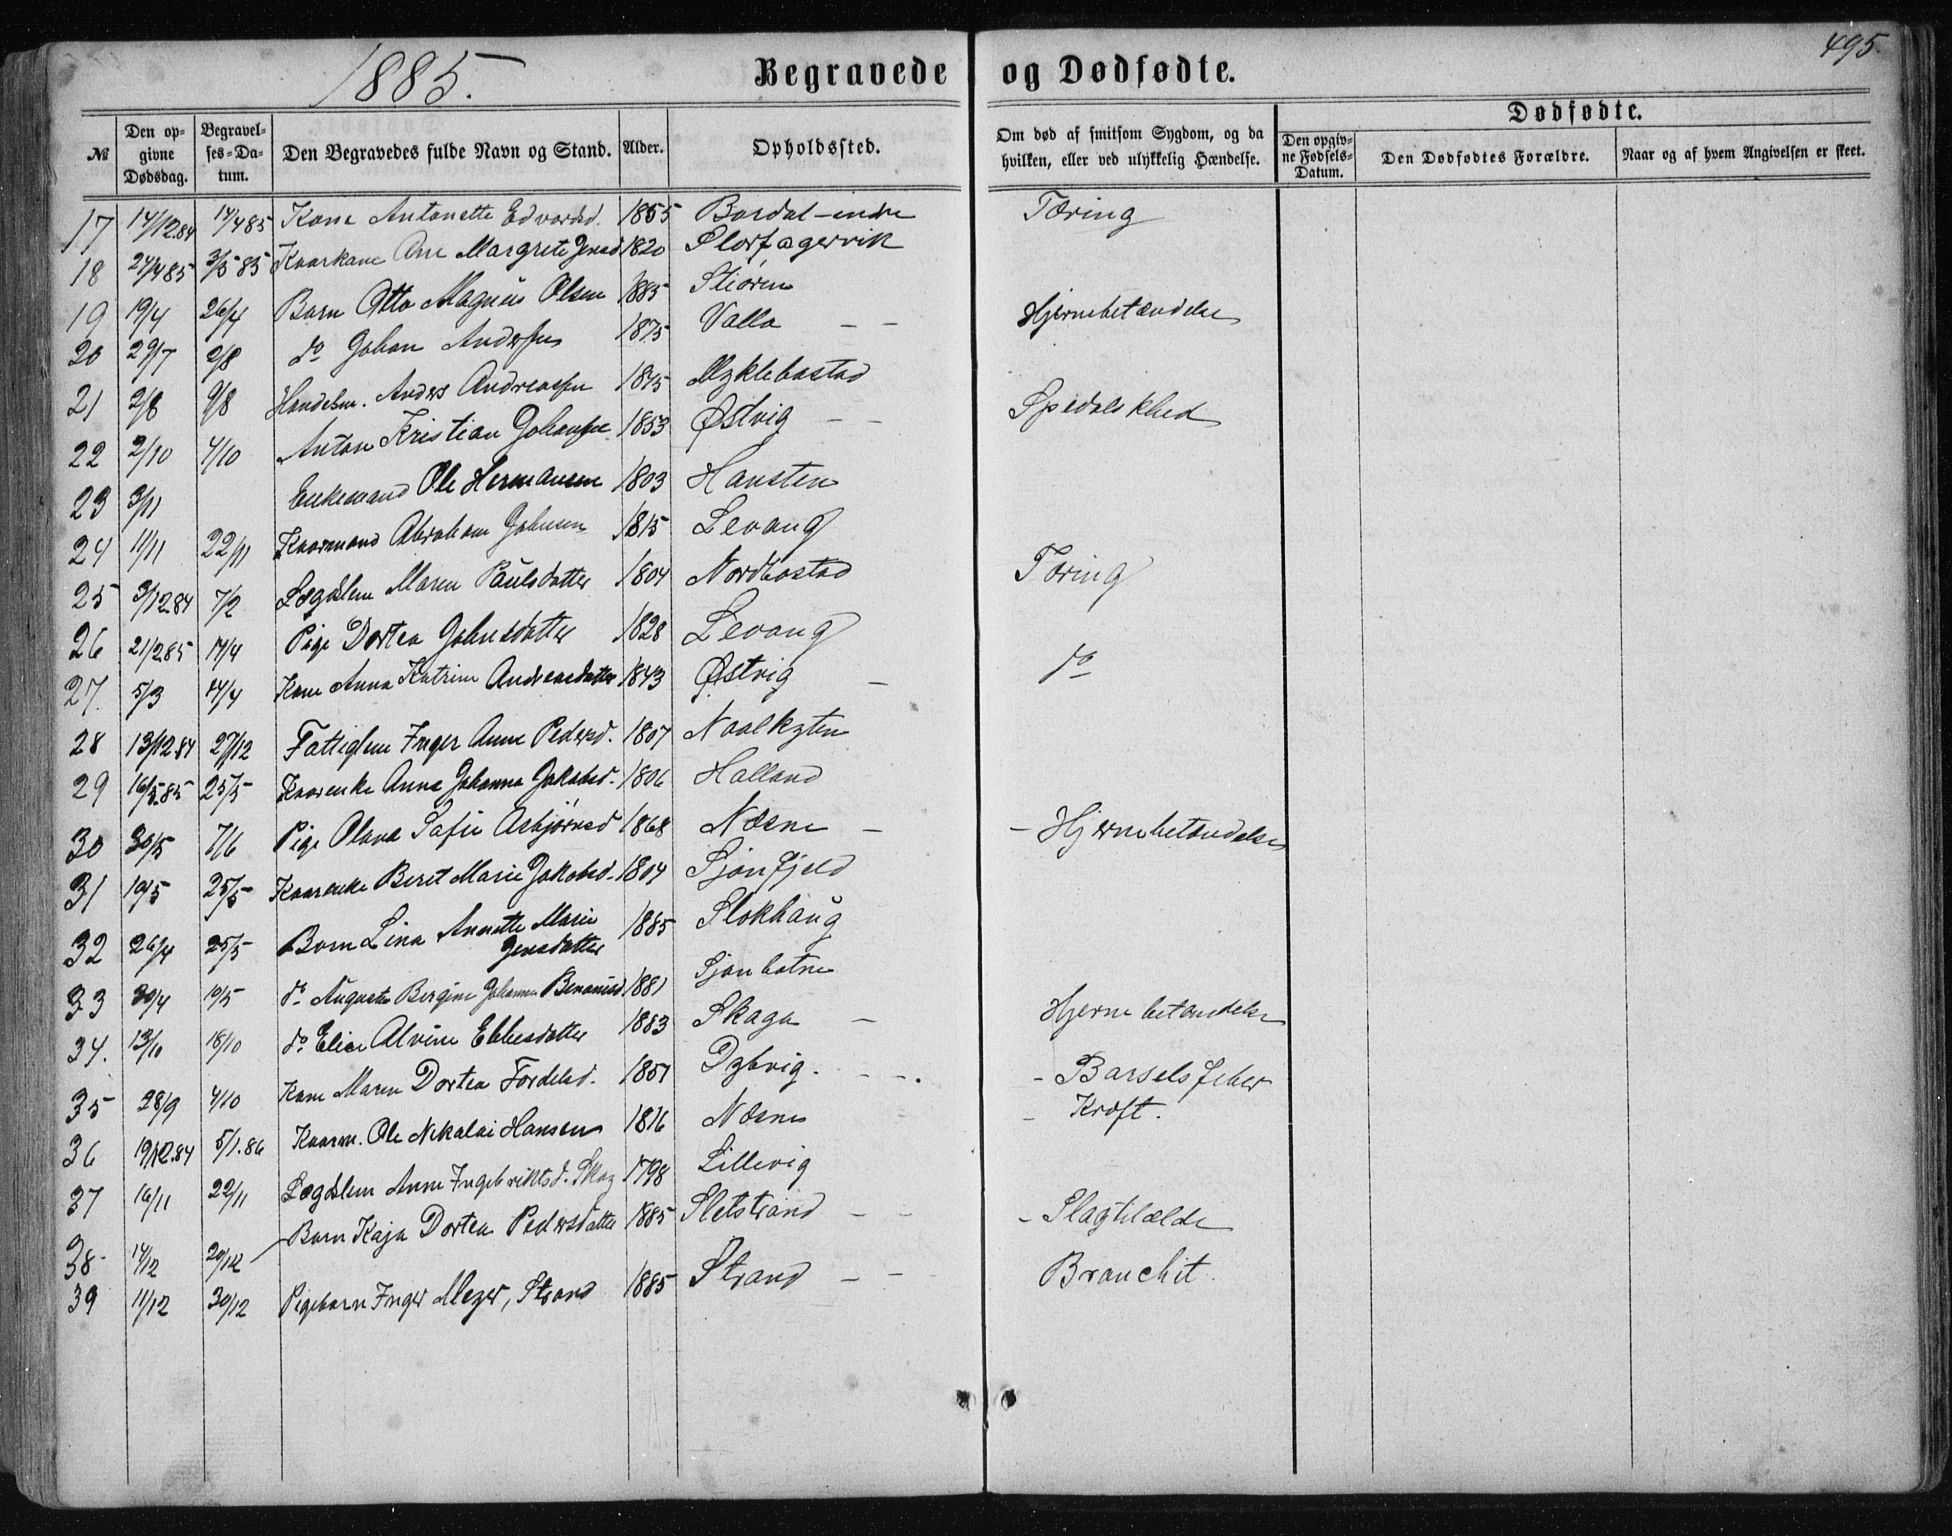 495.
1885.
Begravede og Dødfødte.
№ Den opgivne Dødsdag. Begravelses-Datum. Den Begravedes fulde Navn og Stand. Alder. Opholdssted. Om død af smitsom Sygdom, og da hvilken, eller ved ulykkelig Hændelse. Dødfødte. Den opgivne Fødsels-Datum. Den Dødfødtes Forældre. Naar og af hvem Angivelsen er skeet.
17 14/12.84 14/4 85 Kone Antonette Edvardsd. 1855 Bardal-indre Tæring
18 24/4 85 3/5 85 Kaarkone Ane Margrete Jensd 1820 Storfagervik
19 19/4 26/4 Barn Otto Magnus Olsen 1885 Stiøren
20 29/7 2/8 do Johan Andersen 1875 Valla — — Hjernebetændelse
21 2/8 9/8 Handelsm. Anders Andreassen 1845 Myklebostad
22 2/10 4/10 Anton Kristian Johansen 1853 Østvig — — Spedalskhed
23 3/11 Enkemand Ole Hermansen 1803 Hansten
24 11/11 22/11 Kaarmand Abraham Johnsen 1815 Levang
25 3/12.84 7/2 Lægdslem Maren Paulsdatter 1804 Nordbostad Tæring
26 21/2.85 14/4 Pige Dortea Johnsdatter 1828 Levang
27. 5/3 14/4 Kone Anna Katrine Andreasdatter 1843 Østvig — do
28 13/12.84 27/12 Fattiglem Inger Anne Pedersd. 1807 Naalkyten
29 16/5.85 25/5 Kaarenke Anne Johanna Jakobsd. 1806 Halland
30 30/5 7/6 Pige Olava Sofie Asbjørnsd 1868 Næsne — - Hjernebetændelse
31 10/5 25/5 Kaarenke Beret Marie Jakobsd. 1804 Sjonfjeld
32 26/4 25/5 Barn Lina Annette Marie Jensdatter 1885 Slokhaug
33 30/4 10/5 do Augusta Bergine Johanna Benoniasd 1881 Sjonbotne
34. 13/10 18/10 do Elise Alvine Ebbesdatter 1883 Skaga — Hjernebetændelse
35 28/9 4/10 Kone Maren Dortea Fordelsd. 1851 Dybvig. - -. - Barselsfeber
36 19/12.84 5/1.86 Kaarm. Ole Nikolai Hansen 1816 Næsne - Kræft.
37 16/11 22/11 Lægdslem Anne Ingebriktsd. Skog 1798 Lillevig
38- 14/12 20/12 Barn Kaja Dortea Pedersdatter 1885 Sletstrand — — - Slagtilælde
39 11/12 30/12 Pigebarn Inger Mezer, Strand 1885 Strand — — Bronchit.